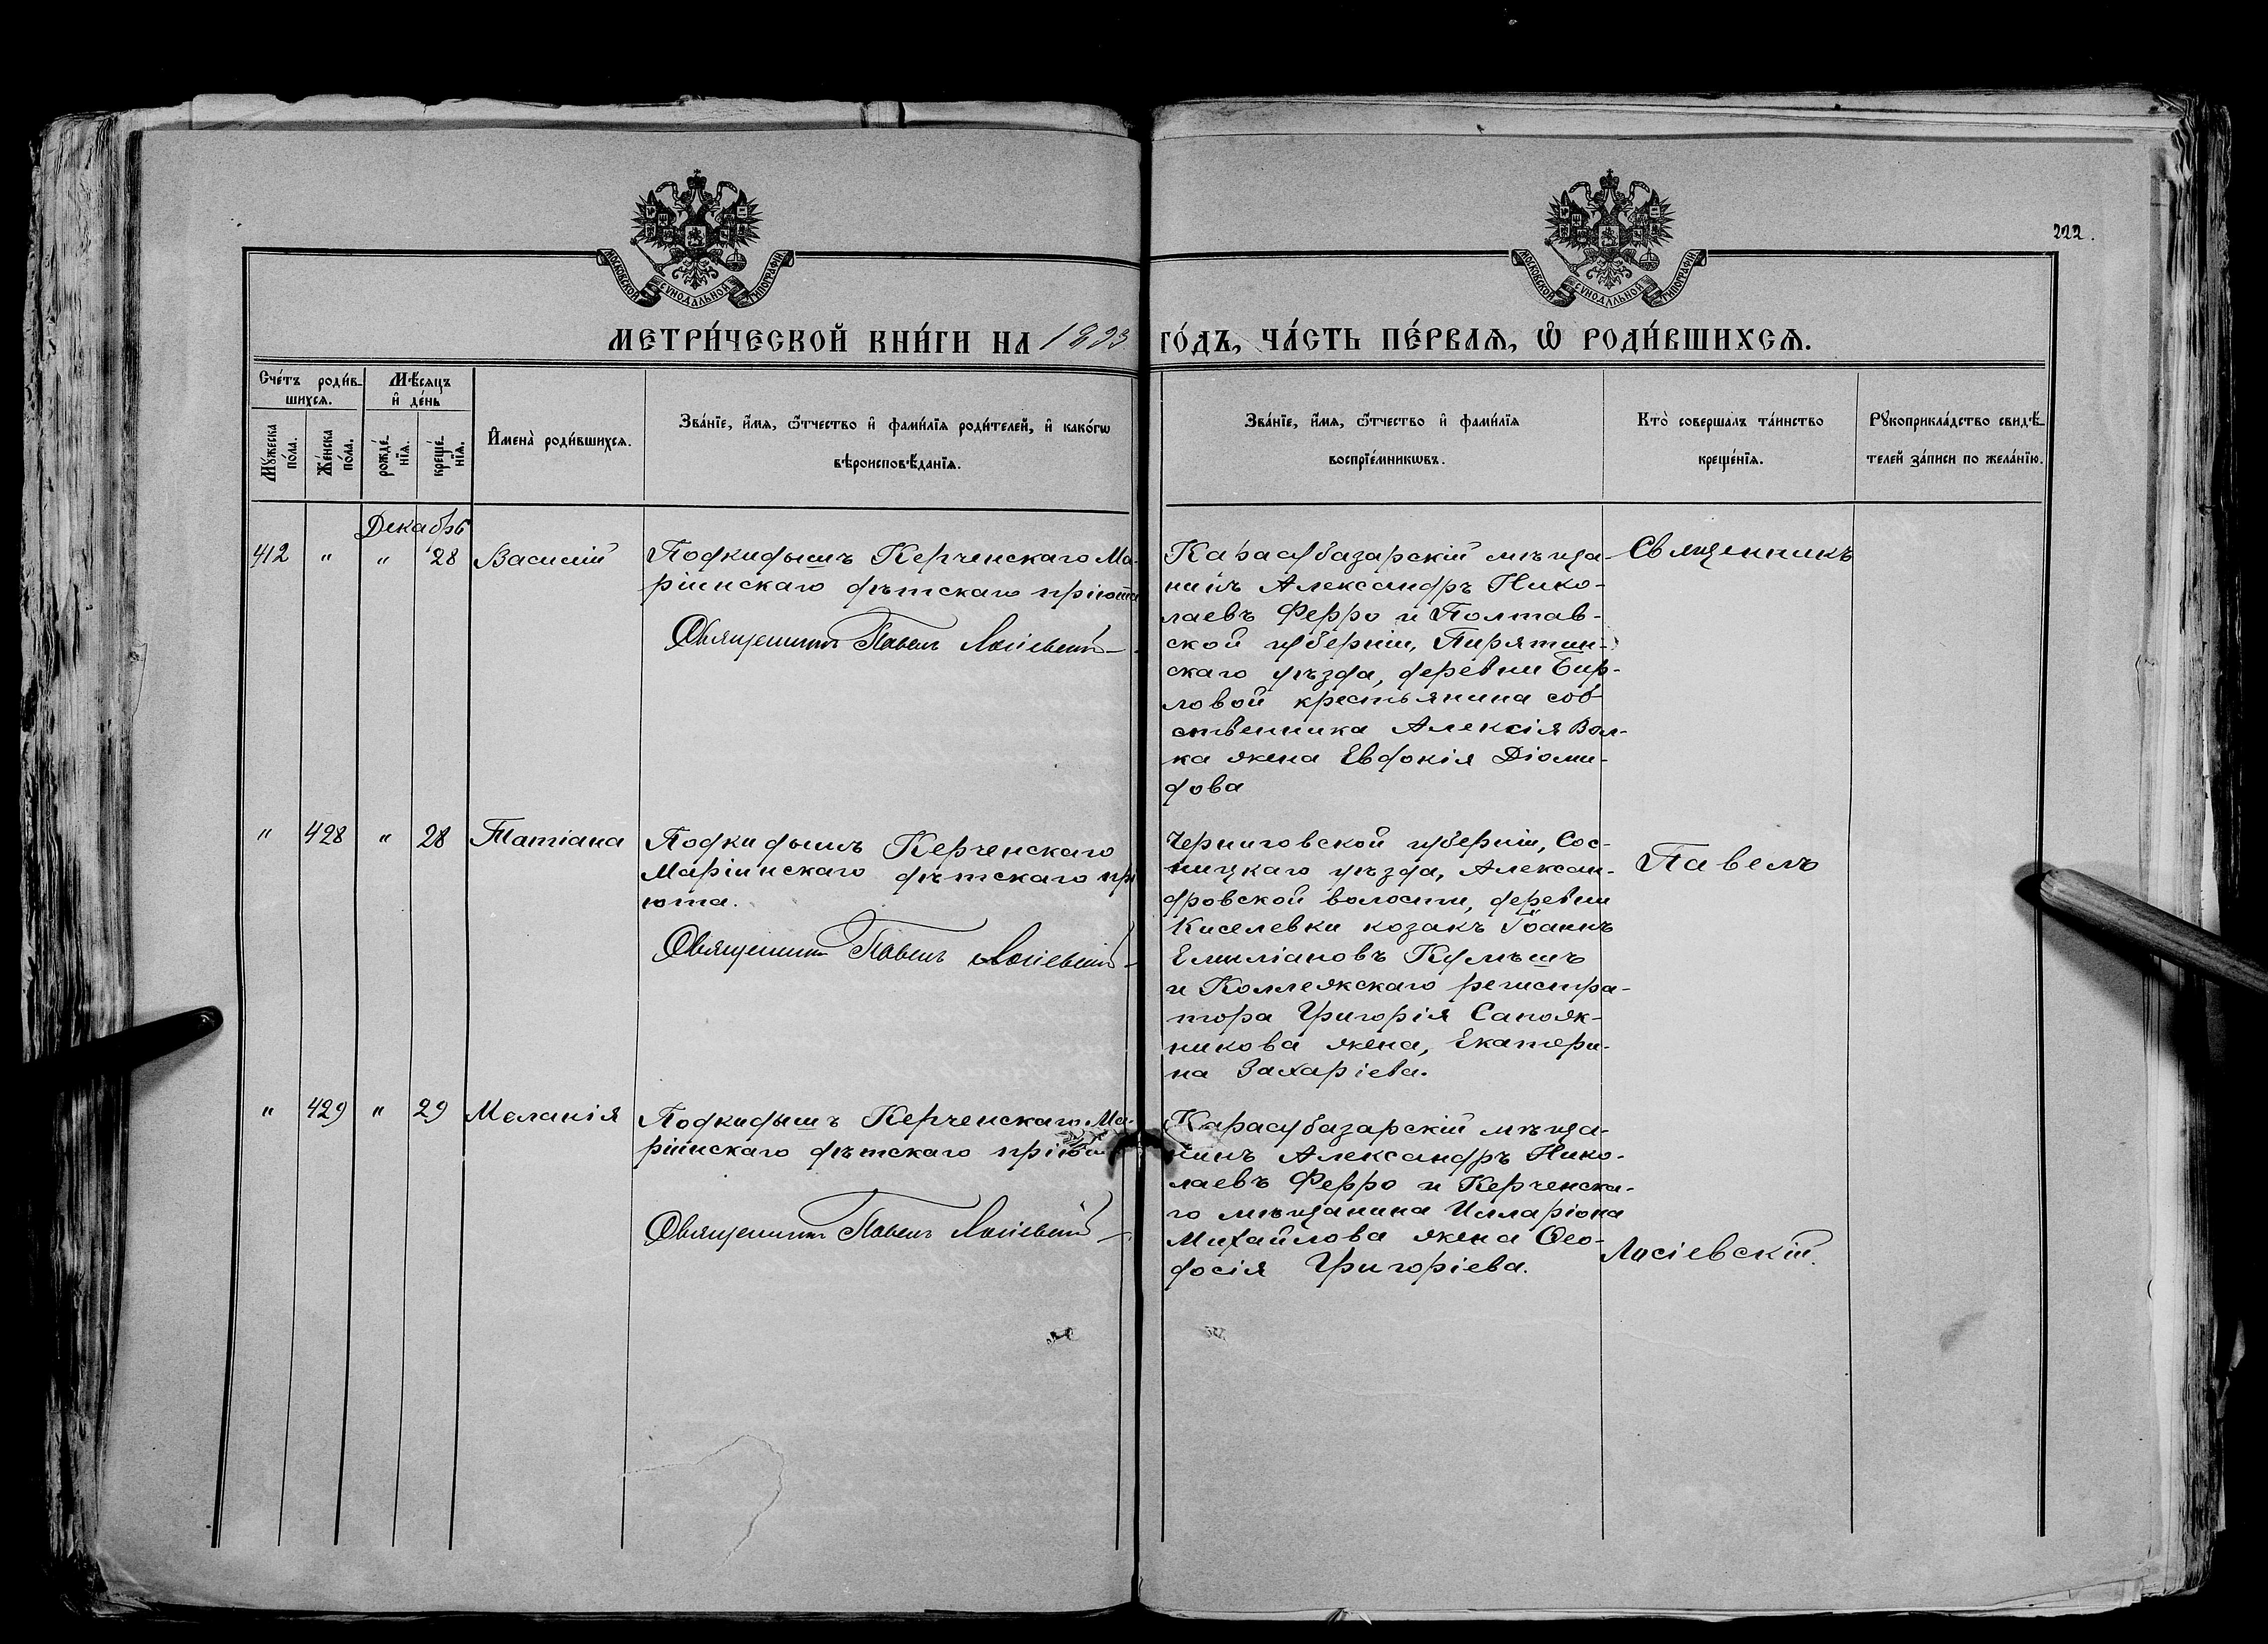 222.
МОСКОВСКОЙ СУНОДАЛЬНОЙ ТИПОГРАФІИ
МОСКОВСКОЙ СУНОДАЛЬНОЙ ТИПОГРАФІИ
МЕТРИ́ЧЕСКОЙ КНИ́ГИ НА 1893 ГО́ДЪ, ЧА́СТЬ ПЕ́РВАѦ, Ѡ҆ РОДИ́ВШИХСѦ.
Сче́тъ роди́в-
шихсѧ.
Мꙋ́жеска
по́ла.
Же́нска
по́ла.
Мѣ́сѧцъ
и҆ де́нь
рожде́-
нїѧ.
креще́-
нїѧ.
И҆мена̀ роди́вшихсѧ.
Зва́нїе, и҆́мѧ, ѻ҆́тчество и҆ фами́лїѧ роди́телей, и҆ како́гѡ
вѣроисповѣ́данїѧ.
Зва́нїе, и҆́мѧ, ѻ҆́тчество и҆ фами́лїѧ
воспрїе́мникѡвъ.
Кто̀ совершалъ та́инство
креще́нїѧ.
Рꙋкоприкла́дство свидѣ́-
телей за́писи по жела́нїю.
Декабрь
412 " " 28 Василій
Подкидышъ Керченскаго Ма-
ріинскаго дѣтскаго пріюта
Священникъ Павелъ Лосіевскій
Карасубазарскій мѣща-
нинъ Александръ Нико-
лаевъ Ферро и Полтав-
ской губерніи, Пирятин-
скаго уѣзда, деревни Бир-
ловой крестьянина соб-
ственника Алексія Вол-
ка жена Евдокія Діоми-
дова
Священникъ
" 428 " 28 Татіана
Подкидышъ Керченскаго
Маріинскаго дѣтскаго прі
юта.
Священникъ Павелъ Лосіевскій
Черниговской губерніи, Сос-
ницкаго уѣзда, Алексан-
дровской волости, деревни
Киселевки козакъ Іоаннъ
Емиліановъ Кулѣшъ
и Коллежскаго регистра-
тора Григорія Сапож-
никова жена, Екатери-
на Захаріева.
Павелъ
" 429 " 29 Меланія
Подкидышъ Керченскаго Ма-
ріинскаго дѣтскаго пріюта
Священникъ Павелъ Лосіевскій
Карасубазарскій мѣща-
нинъ Александръ Нико-
лаевъ Ферро и Керченска-
го мѣщанина Илларіона
Михайлова жена Ѳео-
досія Григоріева.
Лосіевскій.